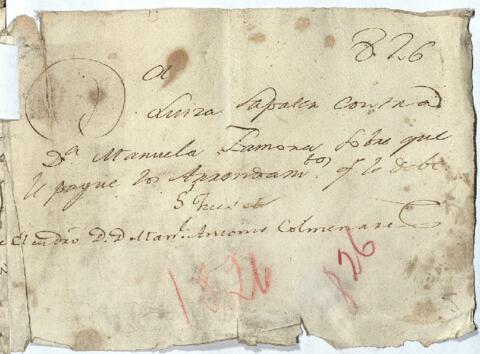 826
Luiza Sapata contra
Dª Manuela Zamora sobre que
le pague los Arrendam.tos q.e le debe
S Juez el
D. D Man.l Antonio Colmenares
1826
826